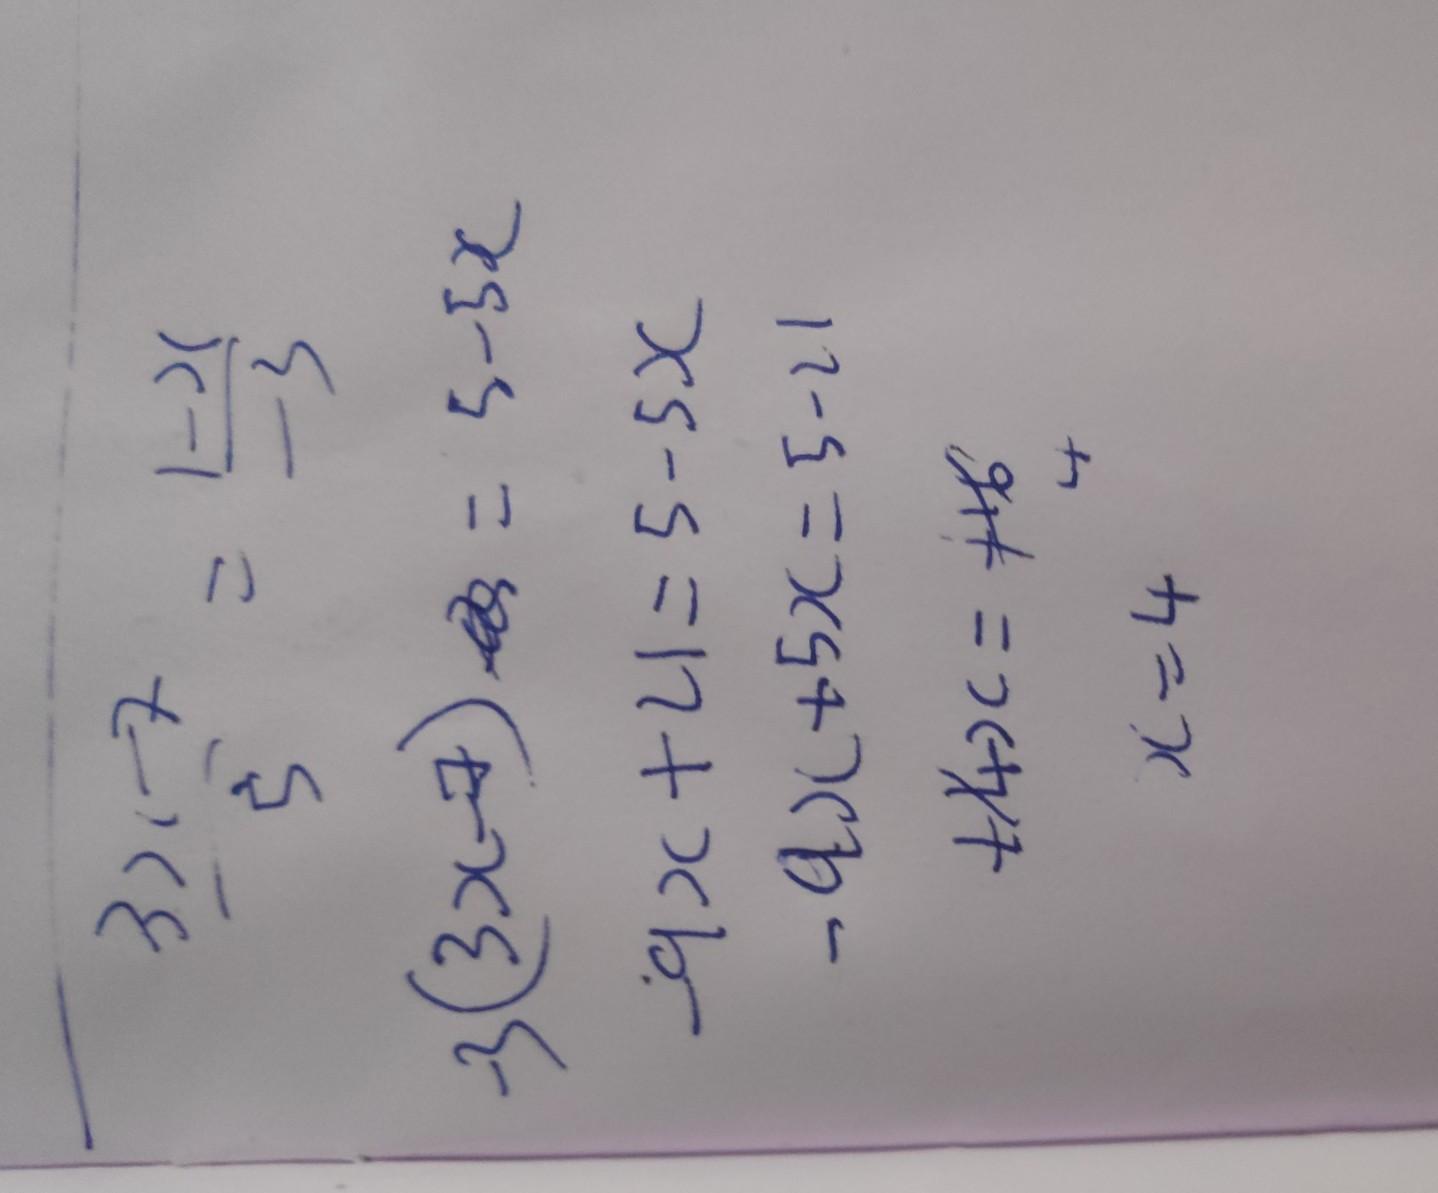 3x-7/5 = 1-x/-3
-3(3x-7) = 5-5x
-9x+21=5-5x
-9x+5x=5-21
+4x=+16
4
x=4